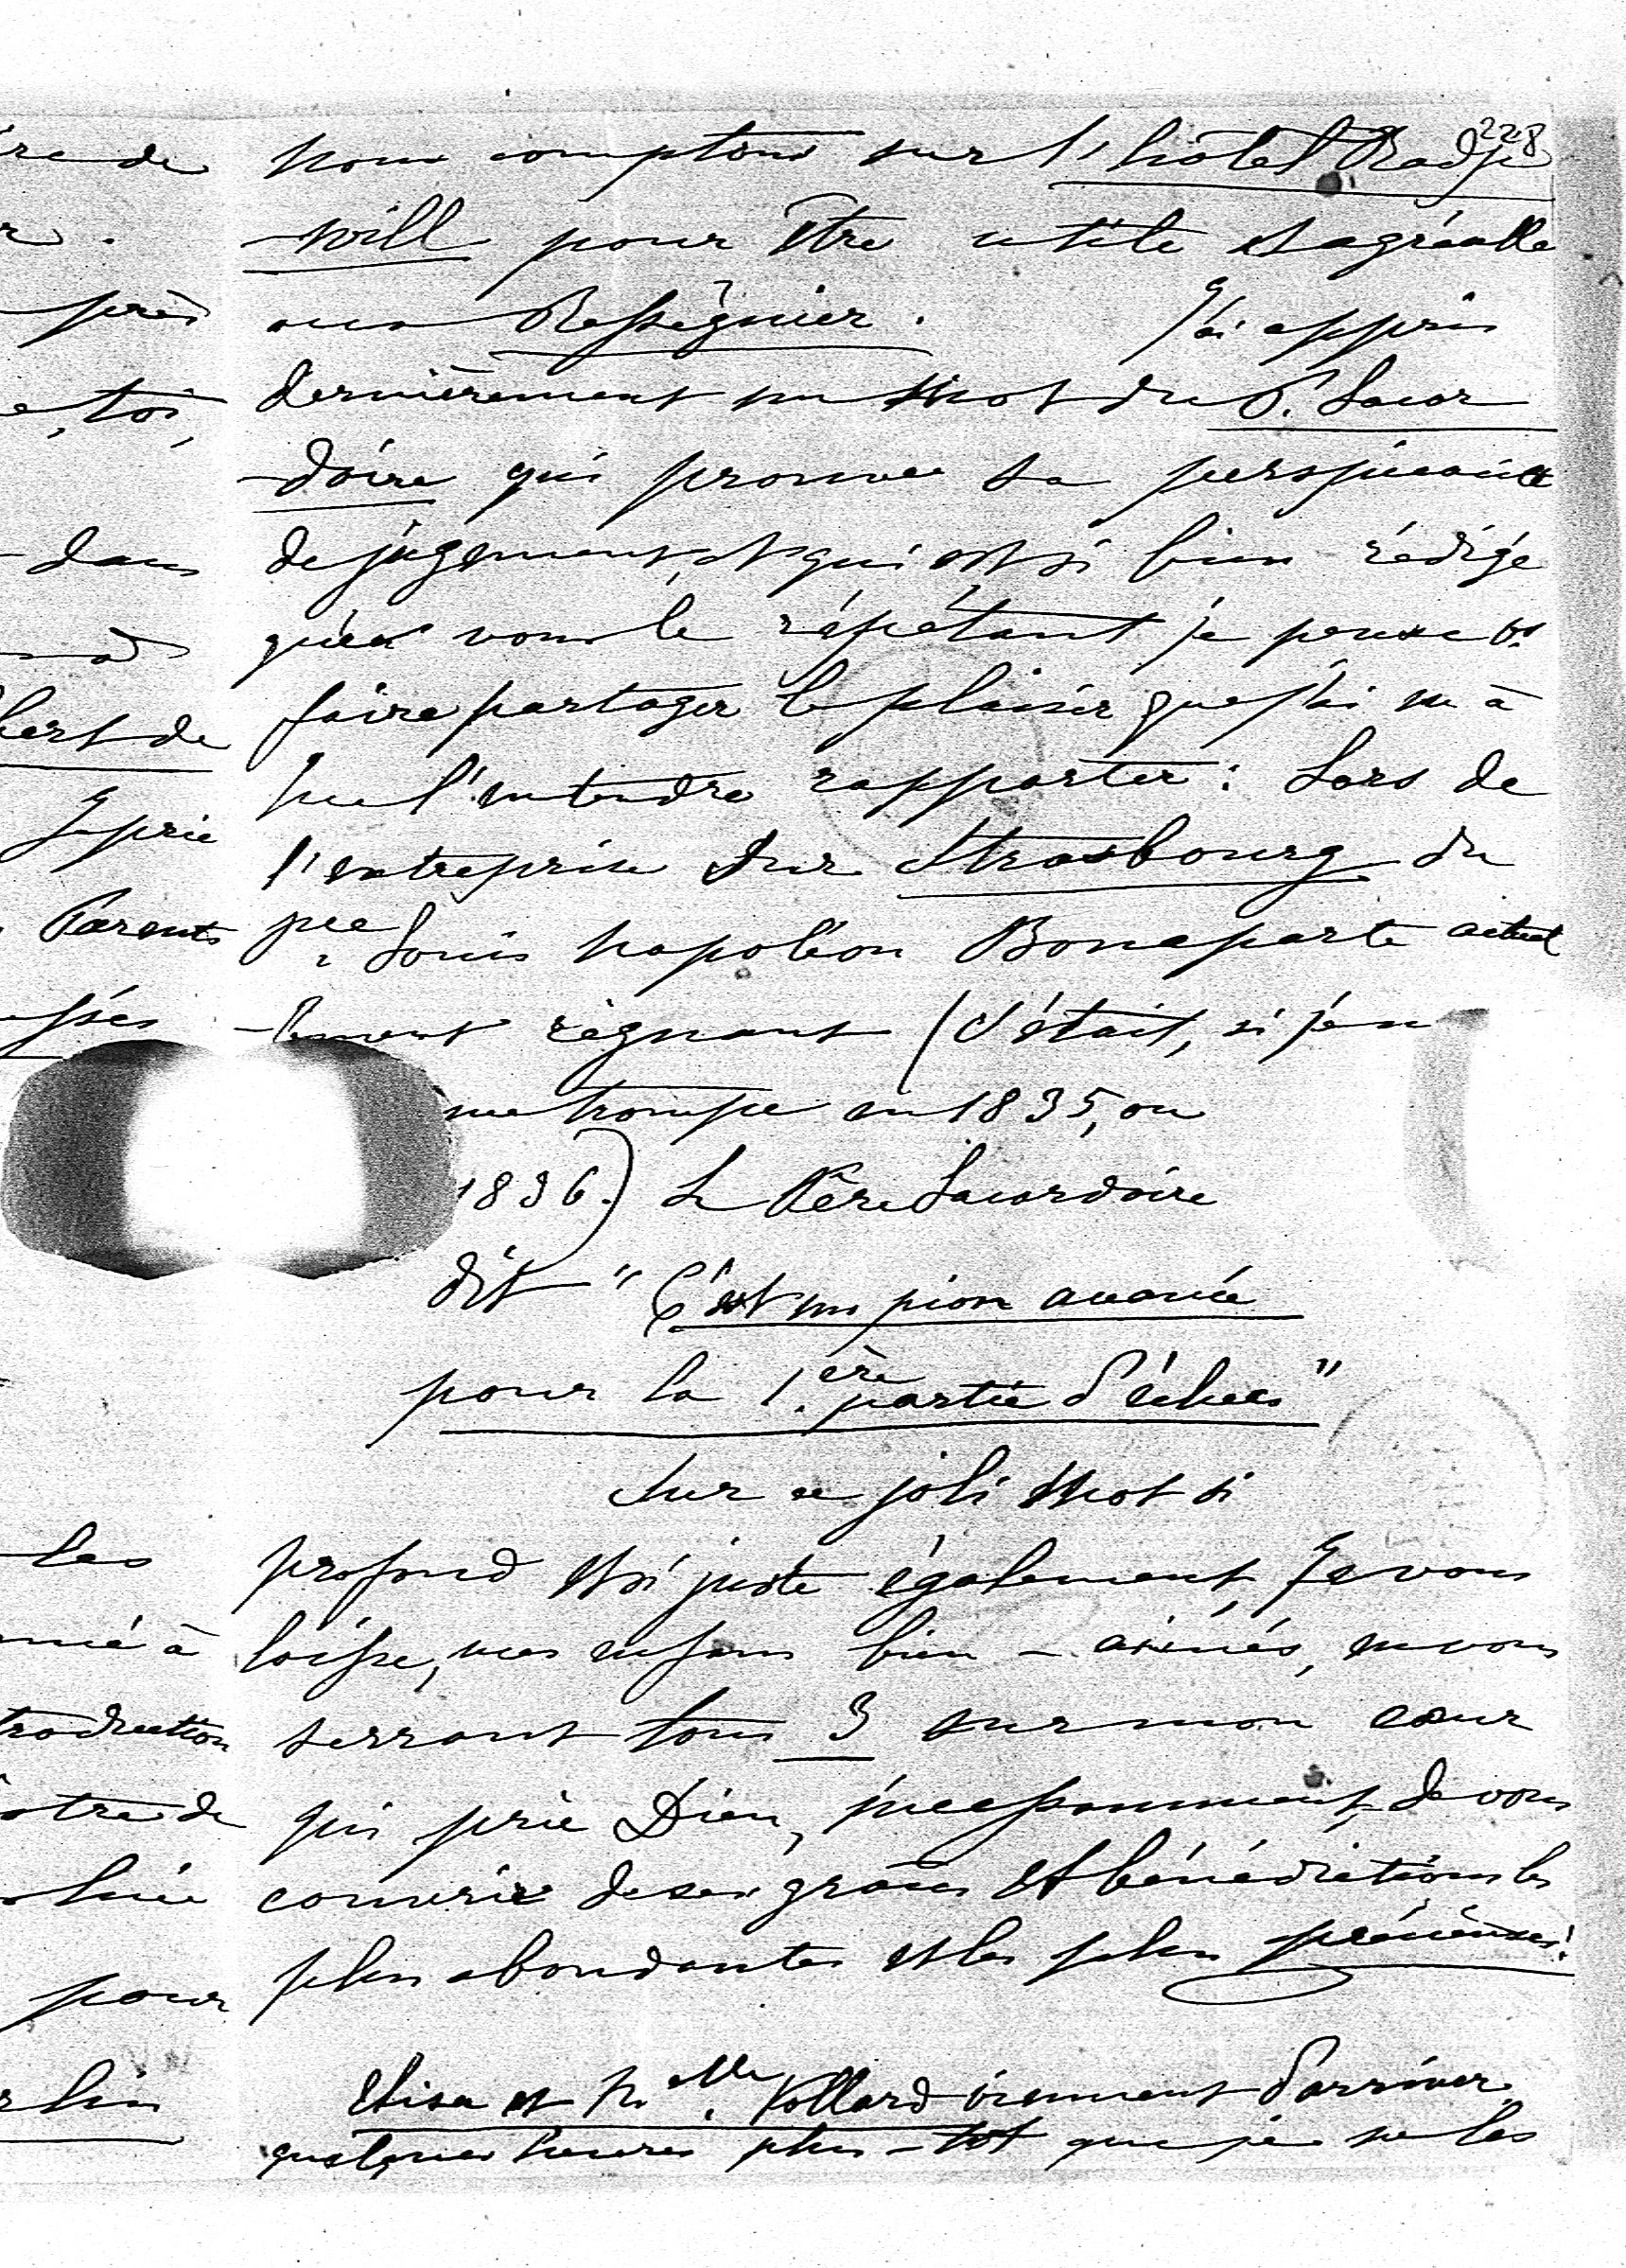 228
nous comptons sur l'hôtel Radzi
-will pour être utile et agréable
aux Rességuier. J'ai appris
dernièrement un mot du P. Lacor
-daire qui prouve sa perspicacité
de jugement, et qui est si bien rédigé
qu'en vous le répétant je pense vs
faire partager le plaisir que j'ai eu à
me l'entendre rapporter : Lors de
l'entreprise sur Strasbourg du
pce Louis Napoléon Bonaparte actuel
-lement régnant (c'était, si je ne
me trompe en 1835, ou
1836.) Le Père Lacordaire
dit " C'est un pion avancé
pour la 1.ère partie d'échecs "
Sur ce joli mot si
profond et si juste également, Je vous
laisse, mes enfans bien-aimés, en vous
serrant tous 3 sur mon cœur
qui prie Dieu, incessamment, de vous
couvrir de ses grâces et bénédictions les
plus abondantes et les plus précieuses!
Elisa et Melle Vollard viennent d'arriver
quelques heures plus-tôt que je ne les
re de
près
toi,
dans
bert de
Je prie
Parents
les
à
troduction
de
pour